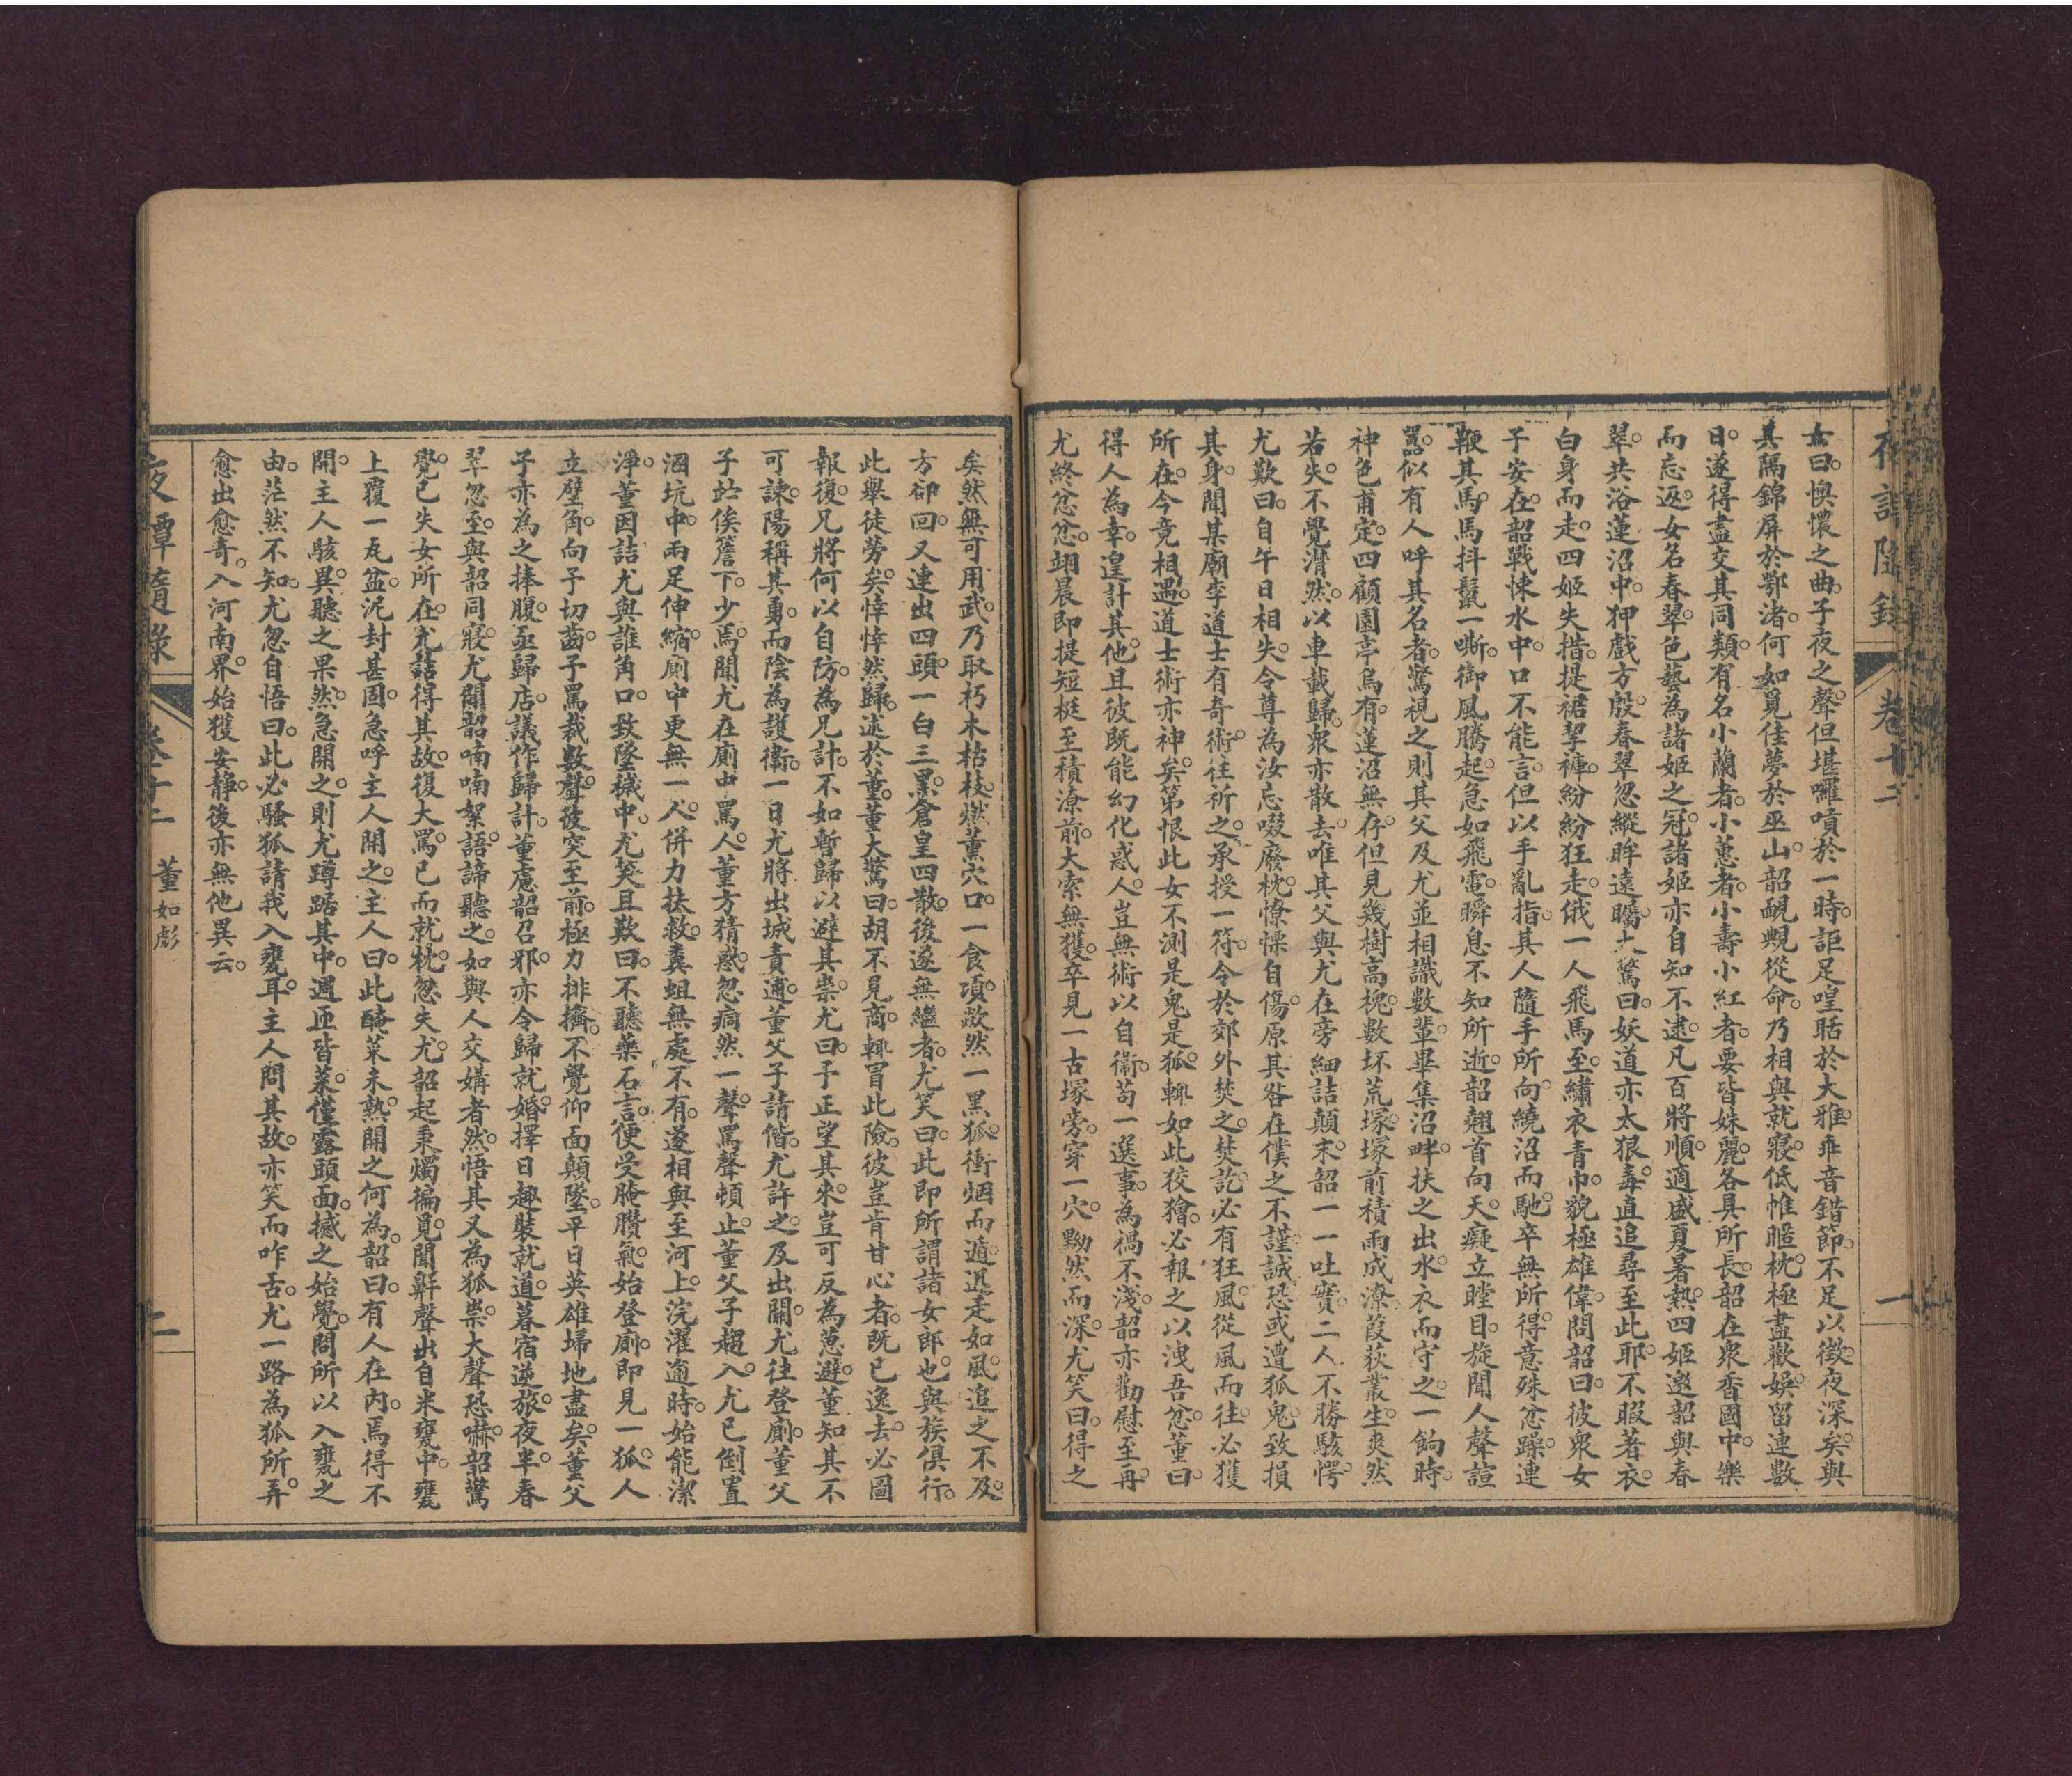 夜譚隨錄 卷十二 一
女曰。懊憹之曲。子夜之聲。但堪囉嗊於一時。詎足喤聒於大雅。乖音錯節。不足以徵。夜深矣。與
其隔錦屏於鄂渚。何如覓佳夢於巫山。韶靦覥從命。乃相與就寢。低帷暱枕。極盡歡娛。留連數
日。遂得盡交其同類。有名小蘭者。小蕙者。小壽小紅者。要皆姝麗。各具所長。韶在衆香國中。樂
而忘返。女名春翠。色藝為諸姬之冠。諸姬亦自知不逮。凡百將順。適盛夏暑熱。四姬邀韶與春
翠。共浴蓮沼中。狎戲方殷。春翠忽縱眸遠矚。大驚曰。妖道亦太狠毒。直追尋至此耶。不暇著衣。
白身而走。四姬失措。提裙挈褲。紛紛狂走。俄一人飛馬至。繡衣青巾。貌極雄偉。問韶曰。彼衆女
子安在。韶戰悚水中。口不能言。但以手亂指。其人隨手所向。繞沼而馳。卒無所得。意殊忿躁。連
鞭其馬。馬抖鬣一嘶。御風騰起。急如飛電。瞬息不知所逝。韶翹首向天。癡立瞠目。旋聞人聲諠
囂。似有人呼其名者。驚視之。則其父及尤並相識數輩。畢集沼畔。扶之出水。衣而守之。一餉時。
神色甫定。四顧園亭烏有。蓮沼無存。但見幾樹高槐。數坏荒塚。塚前積雨成潦。葭荻叢生。爽然
若失。不覺潸然。以車載歸。衆亦散去。唯其父與尤在旁細詰顛末。韶一一吐實。二人不勝駭愕。
尤歎曰。自午日相失。令尊為汝忘啜廢枕。憭慄自傷。原其咎在僕之不謹。誠恐或遭狐鬼。致損
其身。聞某廟李道士有奇術。往祈之。承授一符。令於郊外焚之。焚訖。必有狂風。從風而往。必獲
所在。今竟相遇。道士術亦神矣。第恨此女不測是鬼是狐。輒如此狡獪。必報之以洩吾忿。董曰。
得人為幸。遑計其他。且彼既能幻化惑人。豈無術以自衞。苟一選事。為禍不淺。韶亦勸慰至再。
尤終忿忿。翊晨即提短梃至積潦前。大索無獲。卒見一古塚旁。穿一穴。黝然而深。尤笑曰。得之
矣。然無可用武。乃取朽木枯枝。燃薰穴口。一食頃。歘然一黑狐衝烟而遁。迅走如風。追之不及。
方卻回。又連出四頭。一白三黑。倉皇四散。後遂無繼者。尤笑曰。此即所謂諸女郎也。與族俱行。
此舉徒勞矣。悻悻然歸。述於董。董大驚曰。胡不見商。輒冒此險。彼豈肯甘心者。既已逸去。必圖
報復。兄將何以自防。為兄計。不如暫歸以避其祟。尤曰。予正望其來。豈可反為葸避。董知其不
可諫。陽稱其勇。而陰為護衞。一日尤將出城責逋。董父子請偕。尤許之。及出關。尤往登廁。董父
子竚俟簷下。少焉。聞尤在廁中罵人。董方猜惑。忽痌然一聲。罵聲頓止。董父子趨入。尤已倒置
溷坑中。兩足伸縮。廁中更無一人。併力扶救。糞蛆無處不有。遂相與至河上。浣濯逾時。始能潔
淨。董因詰尤與誰角口。致墜穢中。尤笑且歎曰。不聽藥石言。便受腌臢氣。始登廁。即見一狐。人
立壁角。向予切齒。予罵裁數聲。彼突至前。極力排擠。不覺仰面顛墜。平日英雄埽地盡矣。董父
子亦為之捧腹。亟歸店。議作歸計。董慮韶召邪。亦令歸就婚。擇日趣裝就道。暮宿逆旅。夜半春
翠忽至。與韶同寢。尤聞韶喃喃絮語。諦聽之。如與人交媾者。然悟其又為狐祟。大聲恐嚇。韶驚
覺。已失女所在。尤詰得其故。復大罵。已而就枕。忽失尤。韶起秉燭徧覓。聞鼾聲出自米甕中。甕
上覆一瓦盆。泥封甚固。急呼主人開之。主人曰。此醃菜未熟。開之何為。韶曰。有人在內。焉得不
開。主人駭異。聽之果然。急開之。則尤蹲踞其中。週匝皆菜。僅露頭面。撼之始覺。問所以入甕之
由。茫然不知。尤忽自悟曰。此必騷狐請我入甕耳。主人問其故。亦笑而咋舌。尤一路為狐所弄。
愈出愈奇。入河南界。始獲安靜。後亦無他異云。
夜譚隨錄 卷十二 董如彪 二